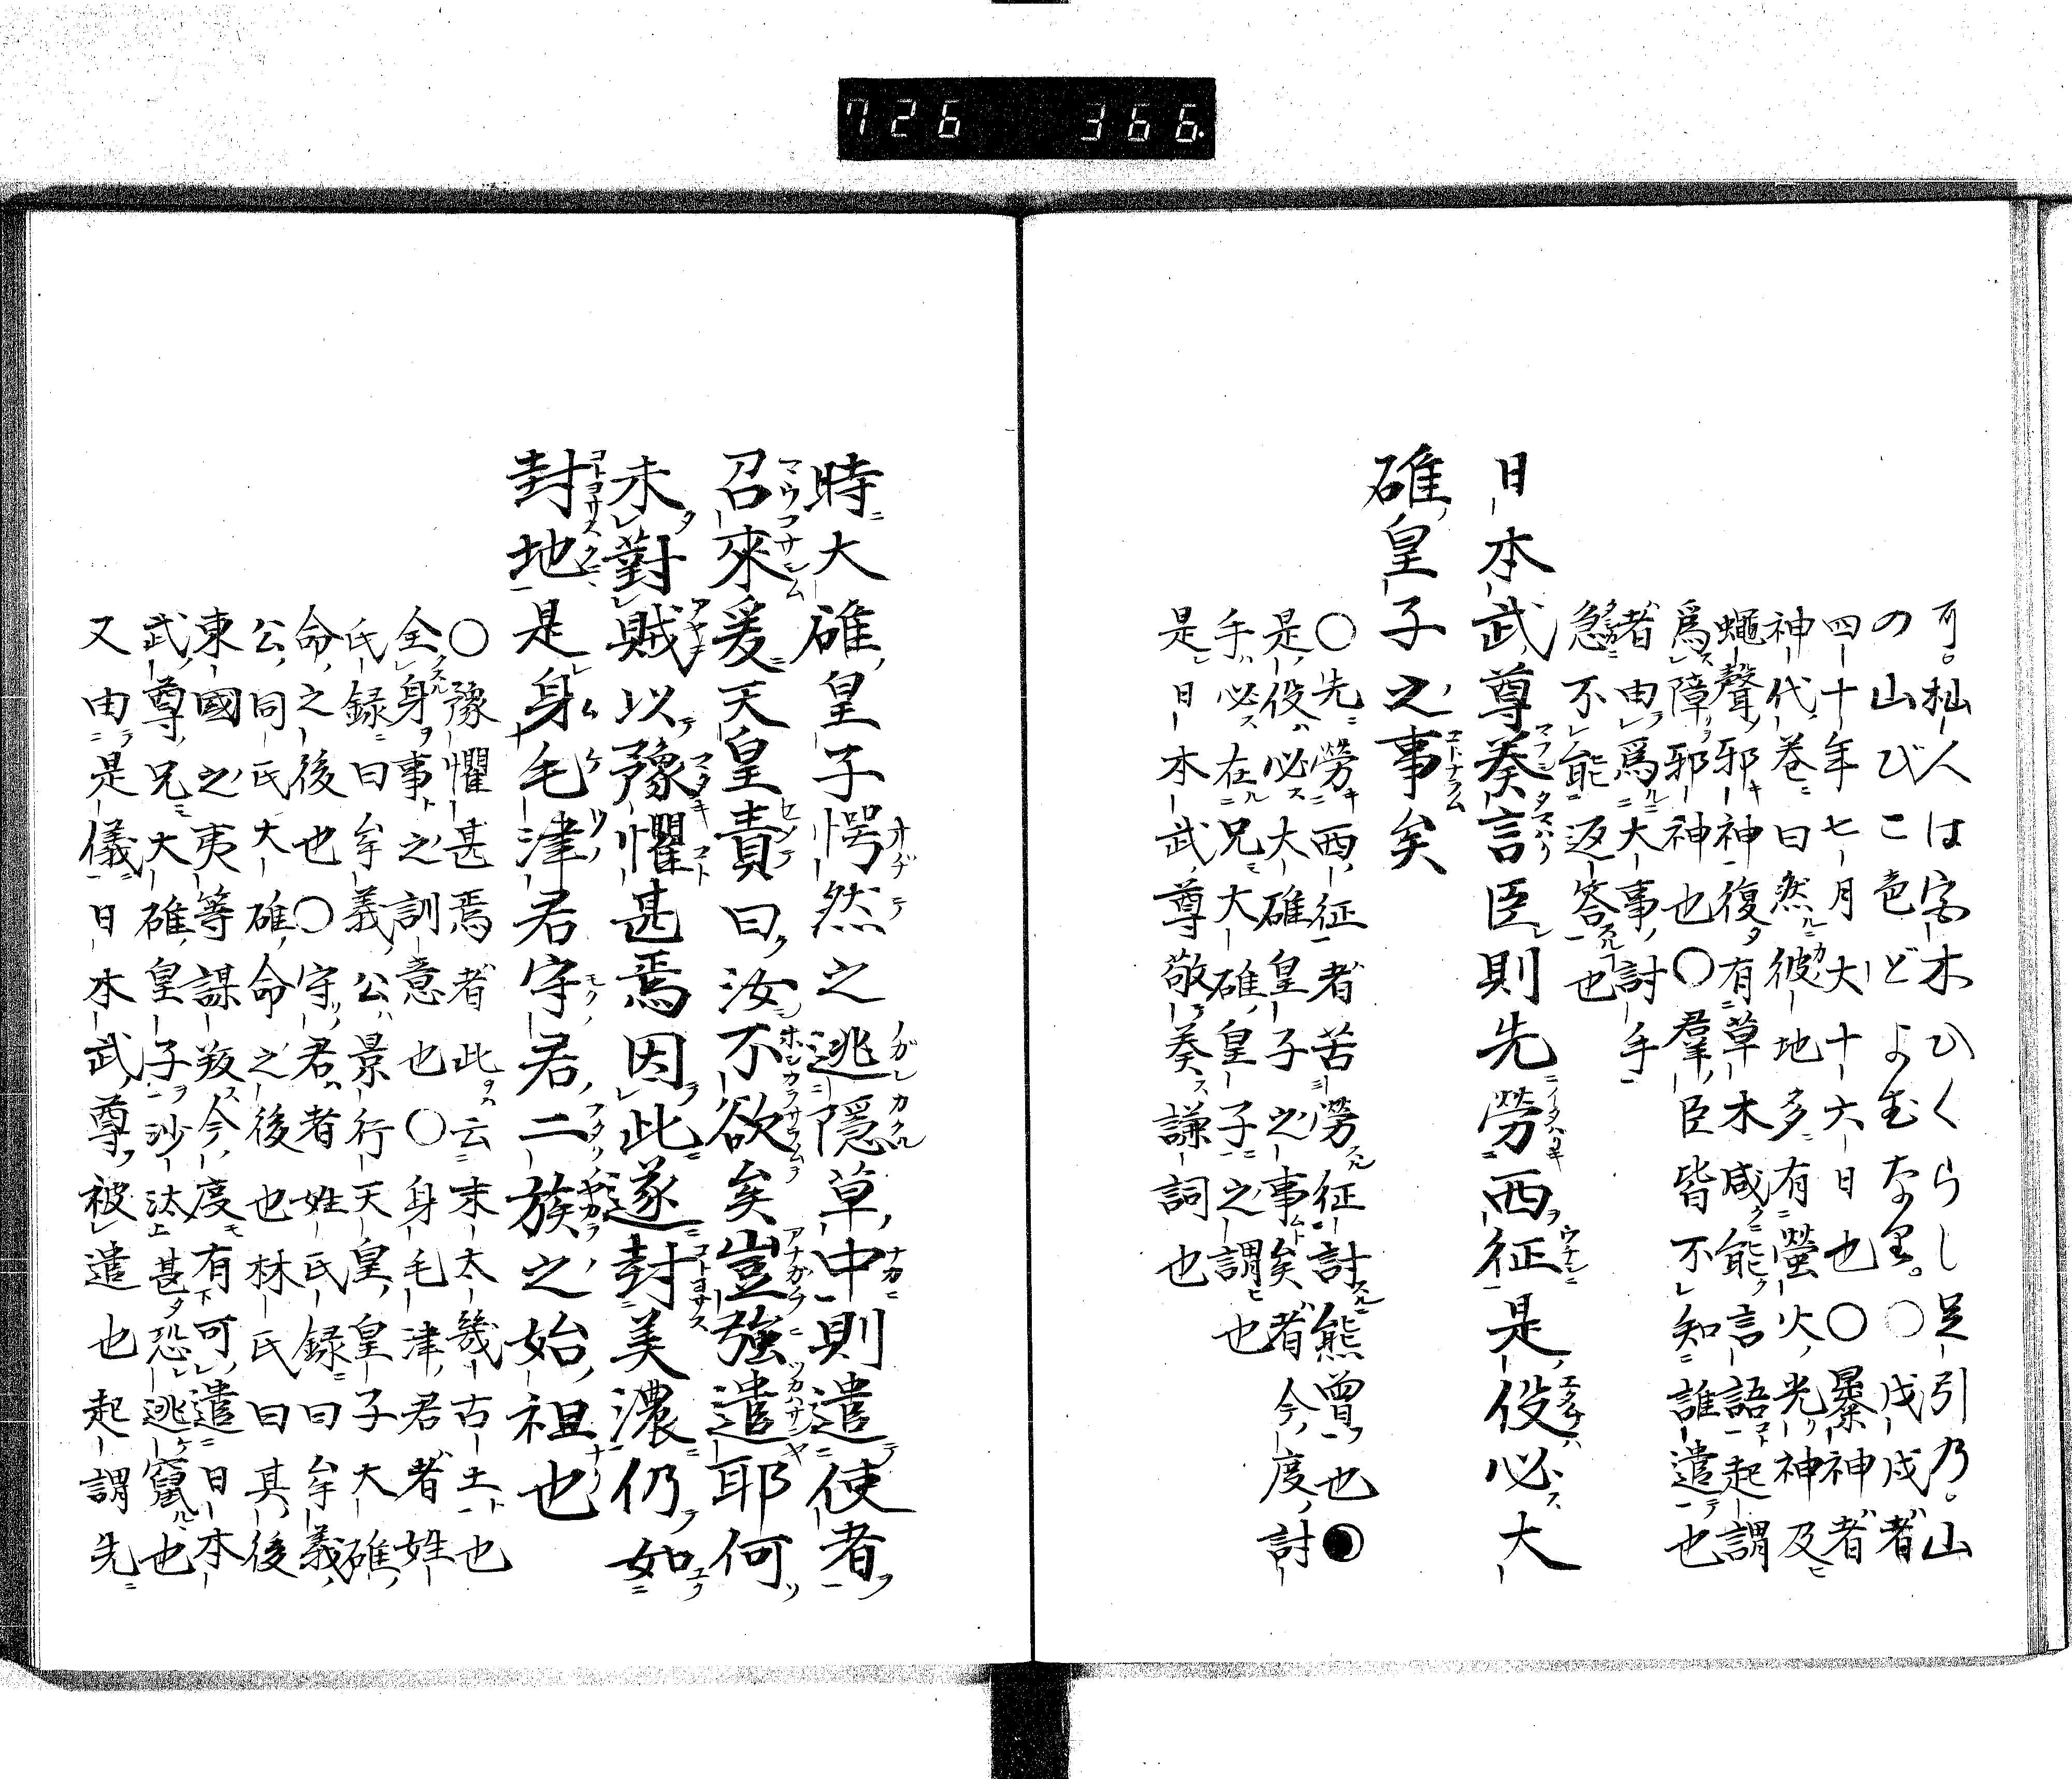 726 366
可。杣人は宮木ひくらし足引乃。山
の山びこ色どよむなり。○戊戌者
四十年七月大十六日也○暴神者
神代巻曰然彼地多有螢火光神及
蠅聲邪神復有草木咸能言語起謂
爲障邪神也○羣臣皆不知誰遣也
者由爲大事討手
急不能返答也
日本武尊奏言臣則先勞西征是役必大
碓皇子之事矣
○先勞西征者苦勞征討熊曾也●
是役必大碓皇子之事矣者今度討
手必在兄大碓皇子之謂也
是日本武尊敬奏謙詞也
時大碓皇子愕然之逃隱草中則遣使者
召來爰天皇責曰汝不欲矣豈強遣耶何
未對賊以豫懼甚焉因此遂封美濃仍如
封地是身毛津君守君二族之始祖也
○豫懼甚焉者此云末太幾古土也
全身事之訓意也○身毛津君者姓
氏録曰牟義公景行天皇皇子大碓
命之後也○守君者姓氏録曰牟義
公同氏大碓命之後也林氏曰其後
東國之夷等謀叛今度有可遣日本
武尊兄大碓皇子沙汰甚恐逃竄也
又由是儀日本武尊被遣也起謂先